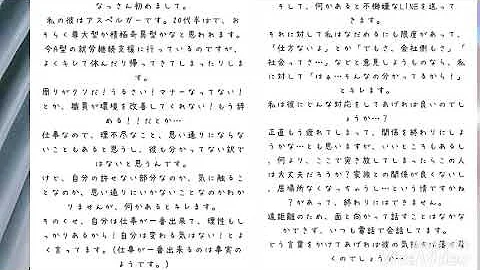 なっさん初めまして。
私の彼はアスペルガーです。20代半ばで、お
そらく尊大型か積極奇異型かなと思われます。
今A型の就労継続支援に行っているのですが、
よくキレて休んだり帰ってきてしまったりしま
す。
周りがクソだ!うるさい!マナーなってない!
とか、職員が環境を改善してくれない!もう辞
める!!だとか…
仕事なので、理不尽なこと、思い通りにならな
いこともあると思うし、彼も分かってない訳で
はないと思うんです。
けど、自分の許せない部分なのか、気に触るこ
となのか、思い通りにいかないことなのかわか
りませんが、何かあるとキレます。
そのくせ、自分は仕事が一番出来て、理性もし
っかりあるから!自分は変わる気はない!とよ
く言ってます。(仕事が一番出来るのは事実の
ようです。)
そして、何かあると不機嫌なLINEを送って
きます。
それに対して私はなだめるにも限度があって、
「仕方ないよ」とか「でもさ、会社側もさ」「
社会ってさ…」などと意見しようものなら、私
に対して「はぁ…そんなの分かってるから!」
とキレます。
私は彼にどんな対応をしてあげれば良いのでし
ょうか…?
正直もう疲れてしまって、関係を終わりにしよ
うかな…とも思いますが、いいところもあるし
、何より、ここで突き放してしまったらこの人
は大丈夫だろうか?家族との関係が良くないし
、居場所なくなっちゃうし…という情ですかね
?があって、終わりにはできません。
遠距離のため、面と向かって話すことはなかな
かできず、いつも電話で会話してます。
どう言葉をかけてあげれば彼の気持ちが落ち着
くのでしょうか…